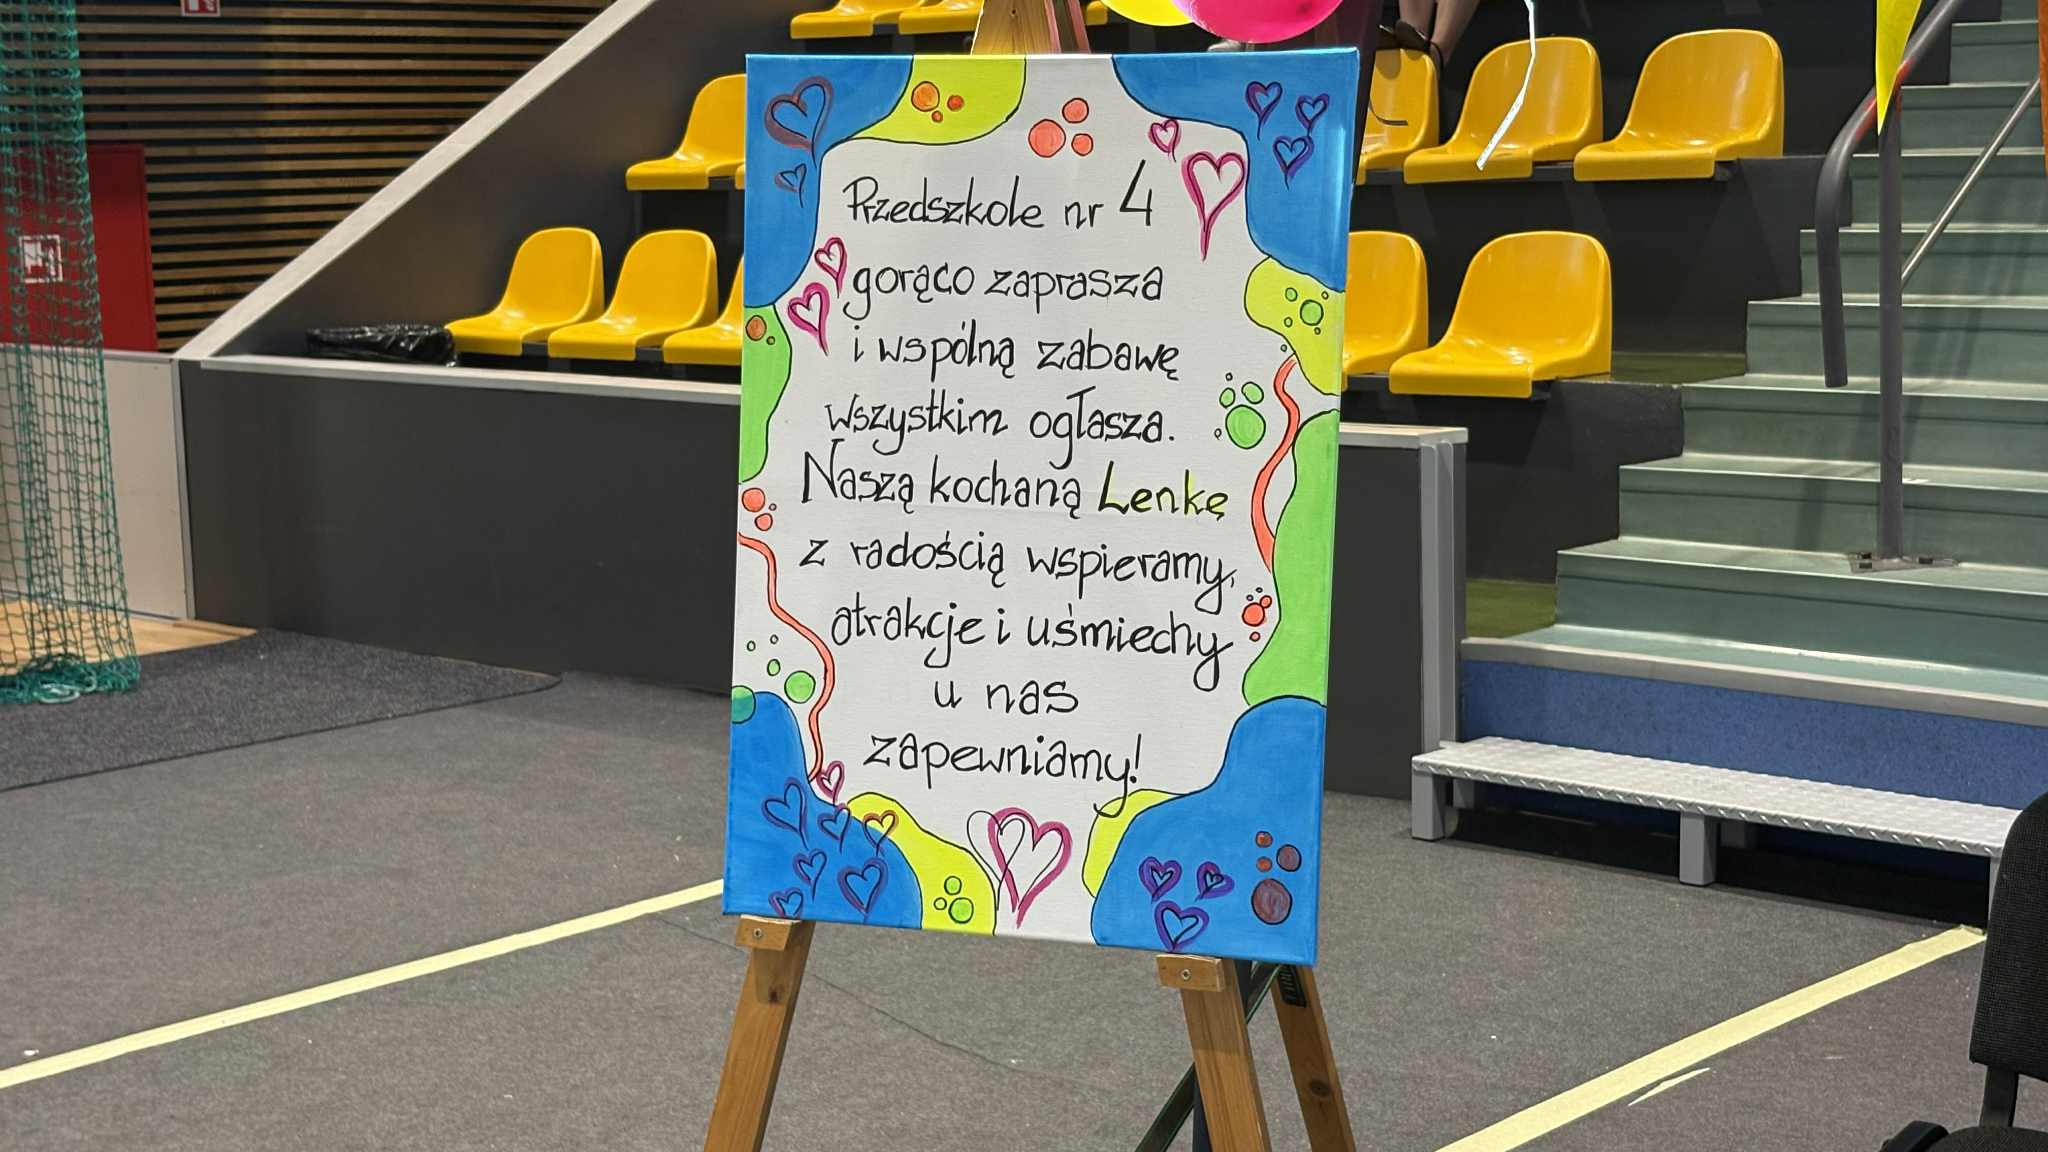 Przedszkole nr 4
gorąco zaprasza
i wspólną zabawę
wszystkim ogłasza.
Naszą kochaną Lenkę
z radością wspieramy,
atrakcje i uśmiechy
u nas
zapewniamy!